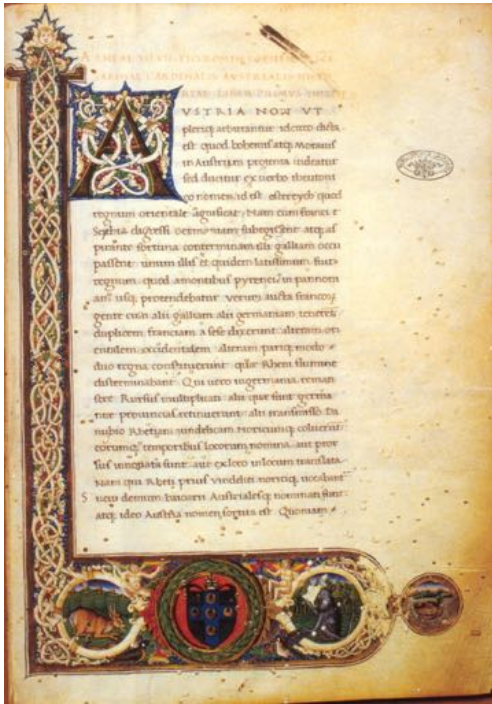 AUSTRIA NON UT
pleriq arbitrantur idcirco dicta
est quod bohemis atq Moravis
in Austrum protenta videatur
sed ducitur ex verbo theutoni
co nomen id est ostreych quod
regnum orientale significat Nam cum franci e
Scythia digressi germaniam subegissent atq as
pirante fortuna conterminam illi galliam occu
passent unum illis et quidem latissimum fuit
regnum quod a montibus pyrenei in pannoni
am usq protendebatur verum aucta franco
gente cum alii galliam alii germaniam tenerent
duplicem franciam a sese dixerunt alteram ori
entalem occidentalem alteram
duo regna constituerunt que Rheni flumine
disterminabant Qui vero in germania reman
sere Rursus multiplicati alii que sunt germa
nie provincias retinuerunt alii transmisso Da
nubio Rhetiam vindelicam Noricumq coluerunt
eorumq temporibus locorum nomina aut pror
sus innovata sunt aut ex loco in locum translata
Nam qui Rheti prius vindelici noriciq vocabant
Suevi demum baioarii Australesq nominati sunt
atq ideo Austria nomen sortita est Quoniam